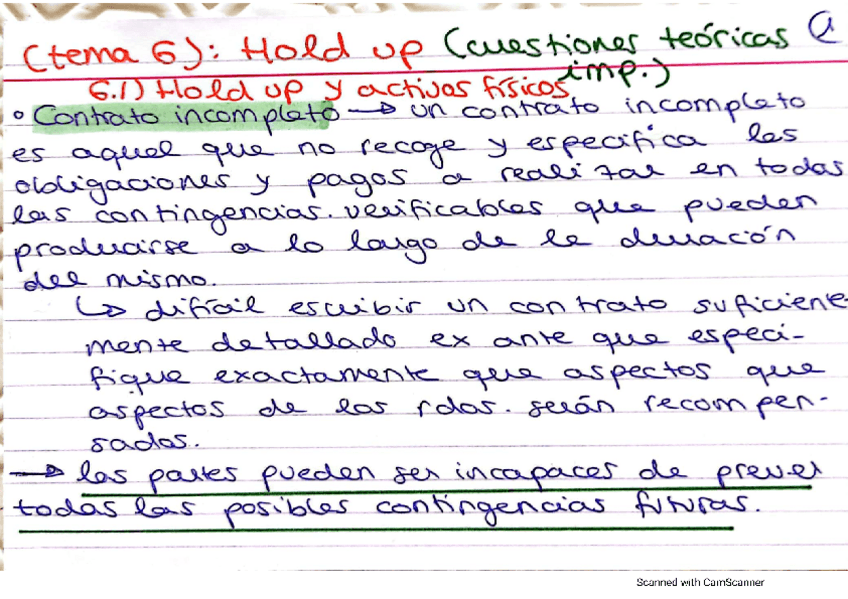 (tema 6): Hold up (cuestiones teóricas imp.) 1
6.1) Hold up y activos físicos
• Contrato incompleto → un contrato incompleto
es aquel que no recoge y especifica las
obligaciones y pagos a realizar en todas
las contingencias verificables que pueden
producirse a lo largo de la duración
del mismo.
↳ difícil escribir un contrato suficiente-
mente detallado ex ante que especi-
fique exactamente que aspectos que
aspectos de los rdos. serán recompen-
sados.
→ las partes pueden ser incapaces de prever
todas las posibles contingencias futuras.
Scanned with CamScanner